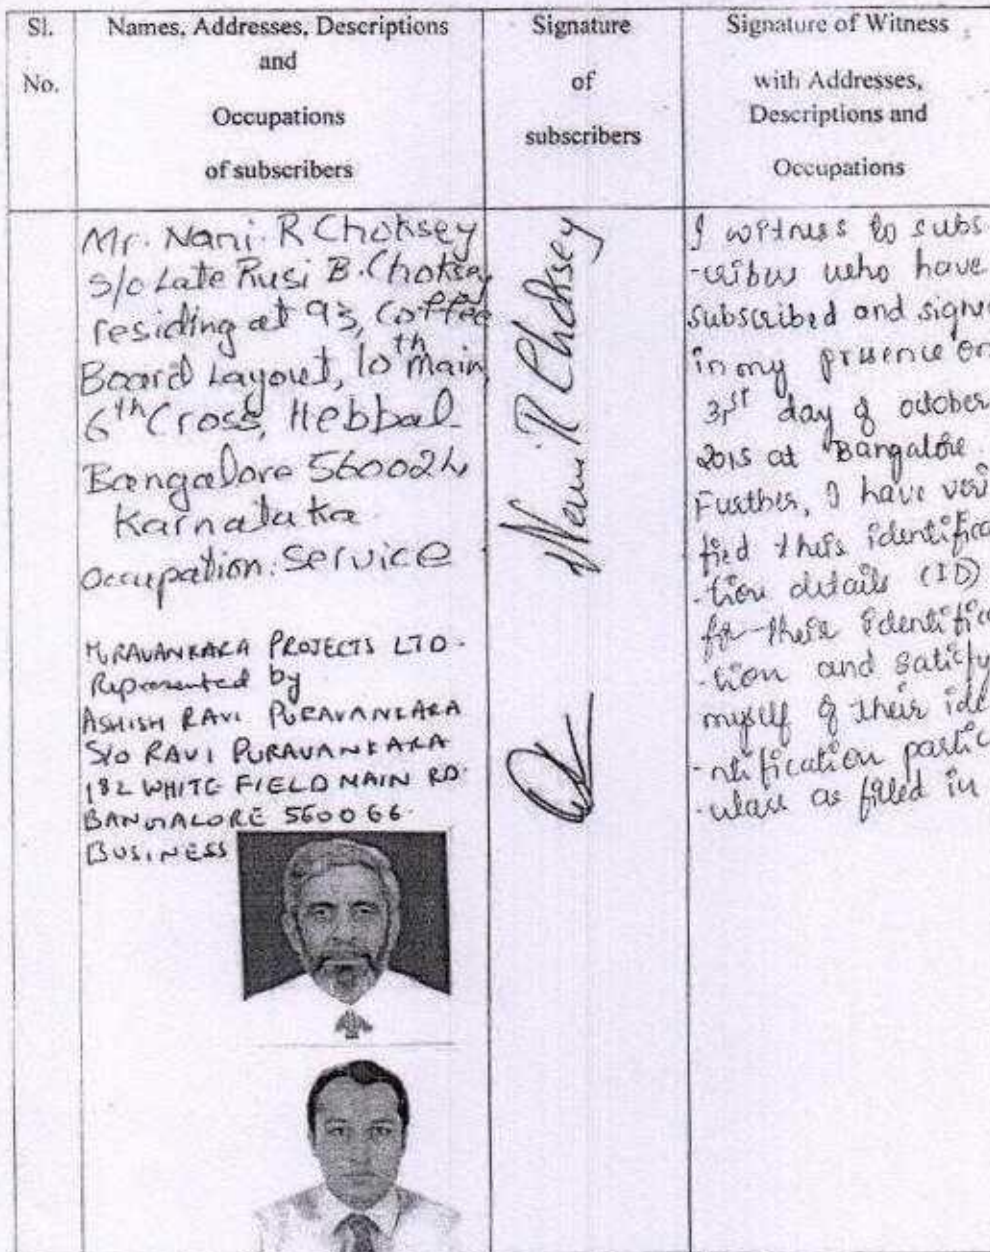 Sl.
No.
Names, Addresses, Descriptions
and
Occupations
of subscribers
Signature
of
subscribers
Signature of Witness
with Addresses,
Descriptions and
Occupations
Mr. Nani. R Choksey
S/o Late Rusi B. Choksey
residing at 93, Coffee
Board Layout, 10th main,
6th Cross, Hebbal
Bangalore 560024
Karnataka
occupation: Service
PURAVANKARA PROJECTS LTD.
Represented by
ASHISH RAVI PURAVANKARA
S/O RAVI PURAVANKARA
182 WHITE FIELD MAIN RD.
BANGALORE 560066.
BUSINESS
Nani R Choksey
I witness to subs
-criber who have
subscribed and signe
in my presence on
31st day of october
2015 at Bangalore.
Further, I have veri
fied their identifica
-tion details (ID)
for their identifica
-tion and satisfy
myself of their ide
-ntification partic
-ulars as filled in